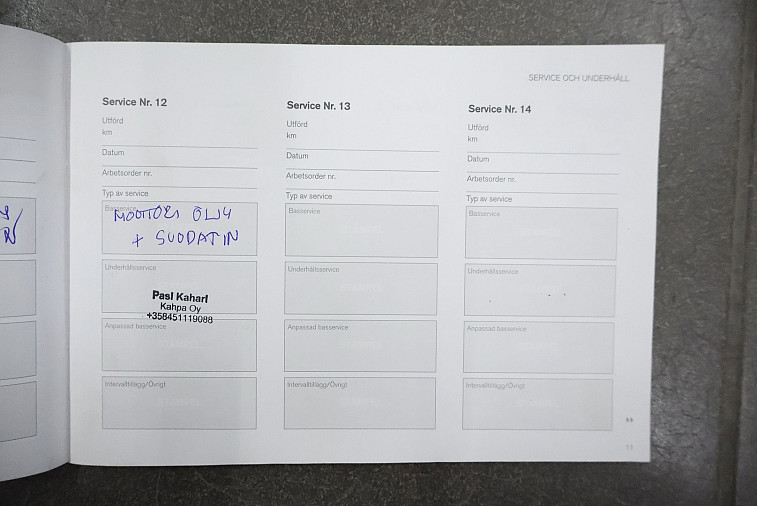 SERVICE OCH UNDERHÅLL
Service Nr. 12
Utförd
km
Datum
Arbetsorder nr.
Typ av service
Basservice
MOOTTORI ÖLJY
+ SUODATIN
Underhållsservice
Pasi Kahari
Kahpa Oy
+358451119088
Anpassad basservice
Intervalltillägg/Övrigt
Service Nr. 13
Utförd
km
Datum
Arbetsorder nr.
Typ av service
Basservice
Underhållsservice
Anpassad basservice
Intervalltillägg/Övrigt
Service Nr. 14
Utförd
km
Datum
Arbetsorder nr.
Typ av service
Basservice
Underhållsservice
Anpassad basservice
Intervalltillägg/Övrigt